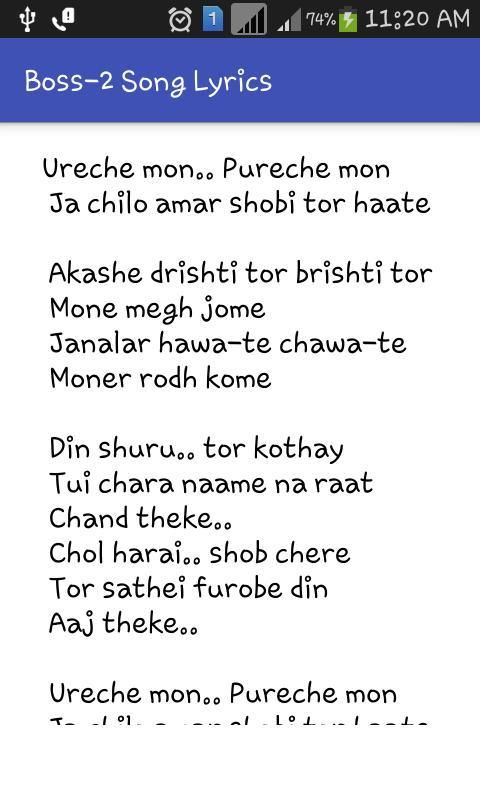 1 74% 11:20 AM
Boss-2 Song Lyrics
Ureche mon.. Pureche mon
Ja chilo amar shobi tor haate
Akashe drishti tor brishti tor
Mone megh jome
Janalar hawa-te chawa-te
Moner rodh kome
Din shuru.. tor kothay
Tui chara naame na raat
Chand theke..
Chol harai.. shob chere
Tor sathei furobe din
Aaj theke..
Ureche mon.. Pureche mon